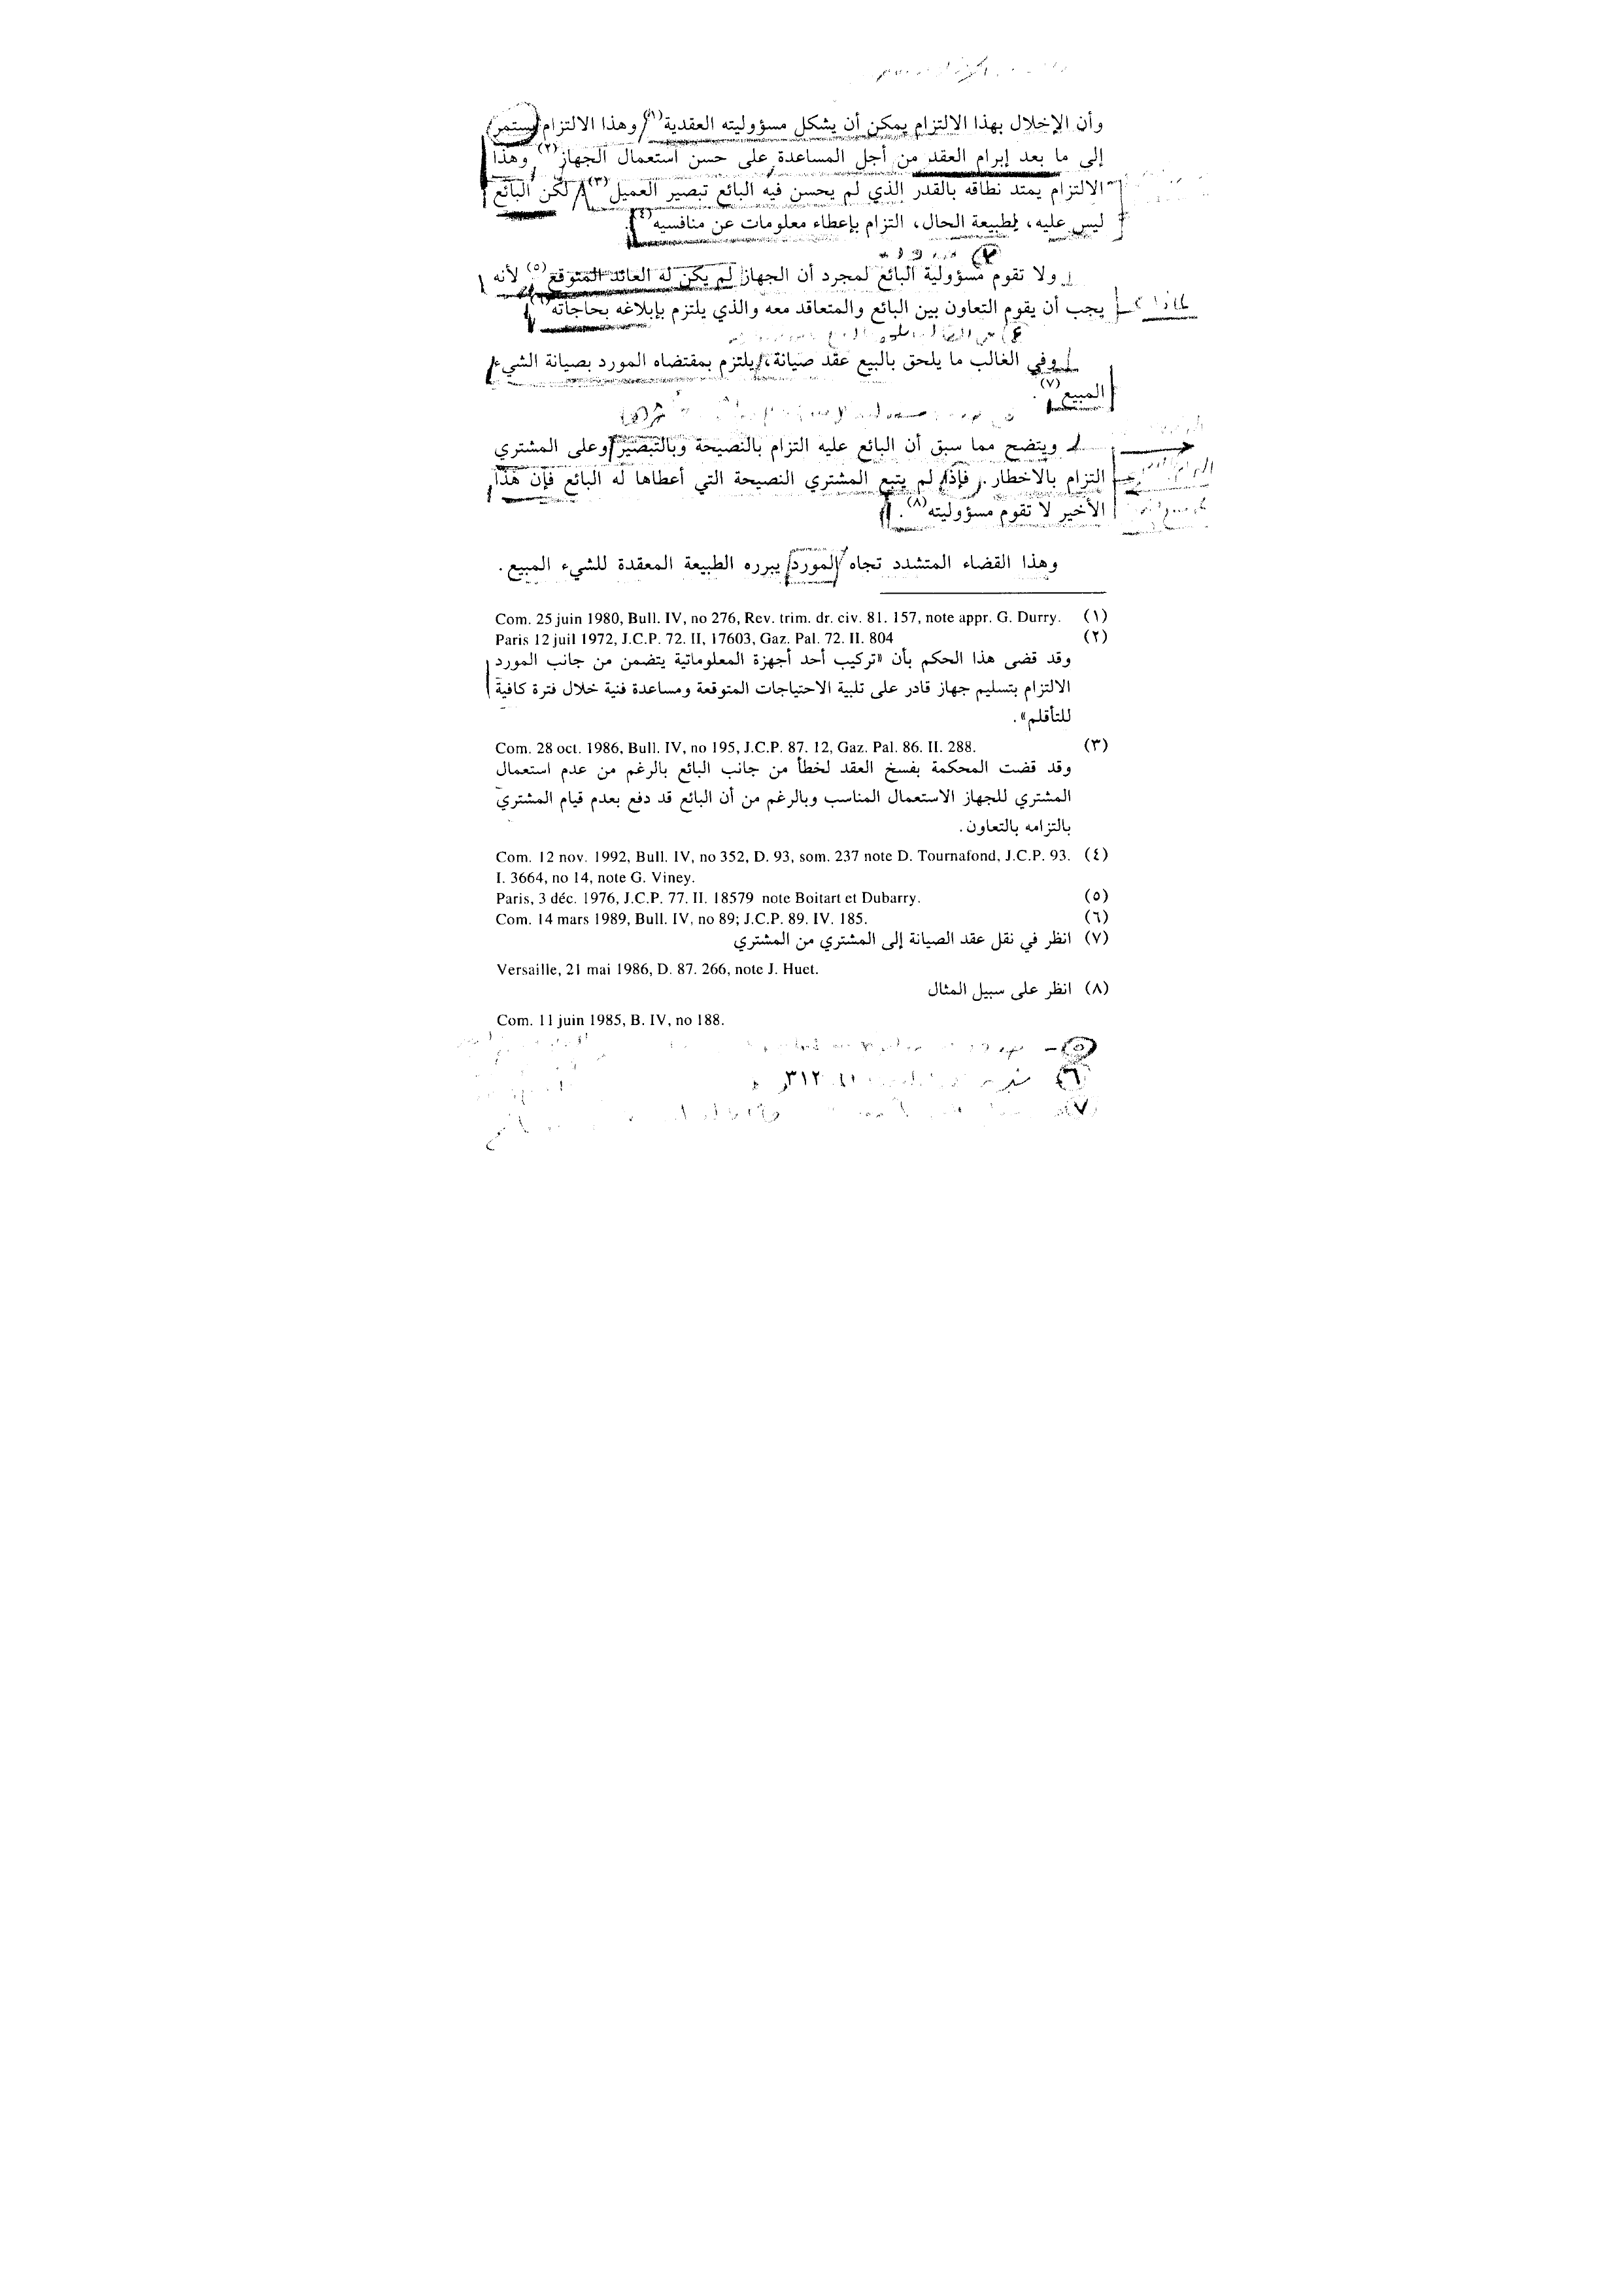 وأن الإخلال بهذا الالتزام يمكن أن يشكل مسؤوليته العقدية(١) وهذا الالتزام يستمر
إلى ما بعد إبرام العقد من أجل المساعدة على حسن استعمال الجهاز(٢) وهذا
الالتزام يمتد نطاقه بالقدر الذي لم يحسن فيه البائع تبصير العميل(٣) لكن البائع
ليس عليه، بطبيعة الحال، التزام بإعطاء معلومات عن منافسيه(٤).
ولا تقوم مسؤولية البائع لمجرد أن الجهاز لم يكن له العائد المتوقع(٥) لأنه
يجب أن يقوم التعاون بين البائع والمتعاقد معه والذي يلتزم بإبلاغه بحاجاته(٦)
لماذا؟
وفي الغالب ما يلحق بالبيع عقد صيانة، يلتزم بمقتضاه المورد بصيانة الشيء
المبيع(٧).
ويتضح مما سبق أن البائع عليه التزام بالنصيحة وبالتبصير وعلى المشتري
التزام بالاخطار. فإذا لم يتبع المشتري النصيحة التي أعطاها له البائع فإن هذا
الأخير لا تقوم مسؤوليته(٨).
وهذا القضاء المتشدد تجاه المورد يبرره الطبيعة المعقدة للشيء المبيع.
(١) Com. 25 juin 1980, Bull. IV, no 276, Rev. trim. dr. civ. 81. 157, note appr. G. Durry.
(٢) Paris 12 juil 1972, J.C.P. 72. II, 17603, Gaz. Pal. 72. II. 804
وقد قضى هذا الحكم بأن «تركيب أحد أجهزة المعلوماتية يتضمن من جانب المورد
الالتزام بتسليم جهاز قادر على تلبية الاحتياجات المتوقعة ومساعدة فنية خلال فترة كافية
للتأقلم».
(٣) Com. 28 oct. 1986, Bull. IV, no 195, J.C.P. 87. 12, Gaz. Pal. 86. II. 288.
وقد قضت المحكمة بفسخ العقد لخطأ من جانب البائع بالرغم من عدم استعمال
المشتري للجهاز الاستعمال المناسب وبالرغم من أن البائع قد دفع بعدم قيام المشتري
بالتزامه بالتعاون.
(٤) Com. 12 nov. 1992, Bull. IV, no 352, D. 93, som. 237 note D. Tournafond, J.C.P. 93.
I. 3664, no 14, note G. Viney.
(٥) Paris, 3 déc. 1976, J.C.P. 77. II. 18579 note Boitart et Dubarry.
(٦) Com. 14 mars 1989, Bull. IV, no 89; J.C.P. 89. IV. 185.
(٧) انظر في نقل عقد الصيانة إلى المشتري من المشتري
Versaille, 21 mai 1986, D. 87. 266, note J. Huet.
(٨) انظر على سبيل المثال
Com. 11 juin 1985, B. IV, no 188.
(٥) -
(٦) ٣١٢
(٧)